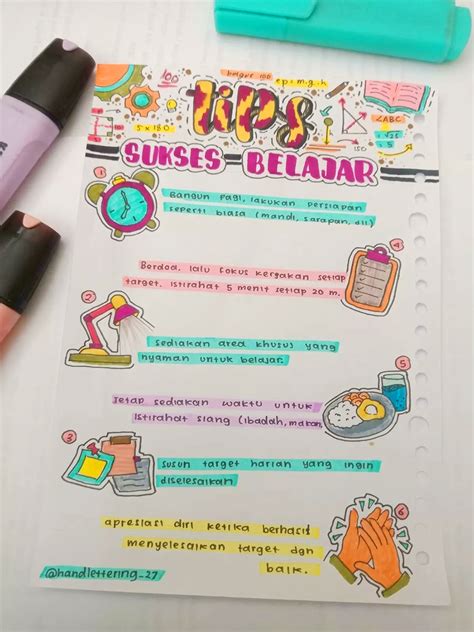 100
bagus 100
ep = m.g.h
5 x 180
<ABC
tips
SUKSES BELAJAR
1
Bangun pagi, lakukan persiapan
seperti biasa (mandi, sarapan, dll)
4
Berdoa, lalu fokus kerjakan setiap
target. istirahat 5 menit setiap 20 m.
2
sediakan area khusus yang
nyaman untuk belajar.
5
tetap sediakan waktu untuk
istirahat siang (ibadah, makan
3
susun target harian yang ingin
diselesaikan
6
apresiasi diri ketika berhasil
menyelesaikan target dgn
baik.
@handlettering_27